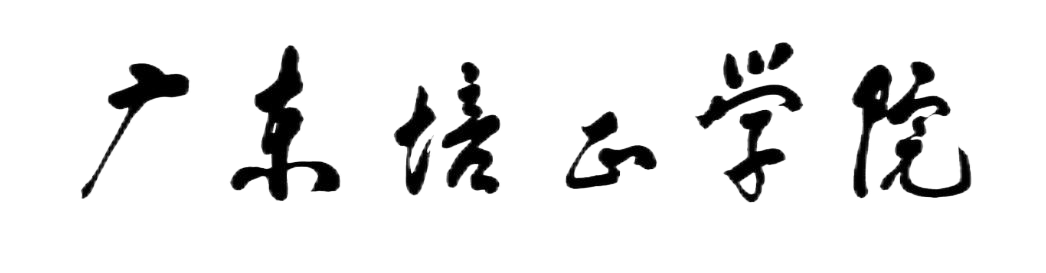 广东培正学院